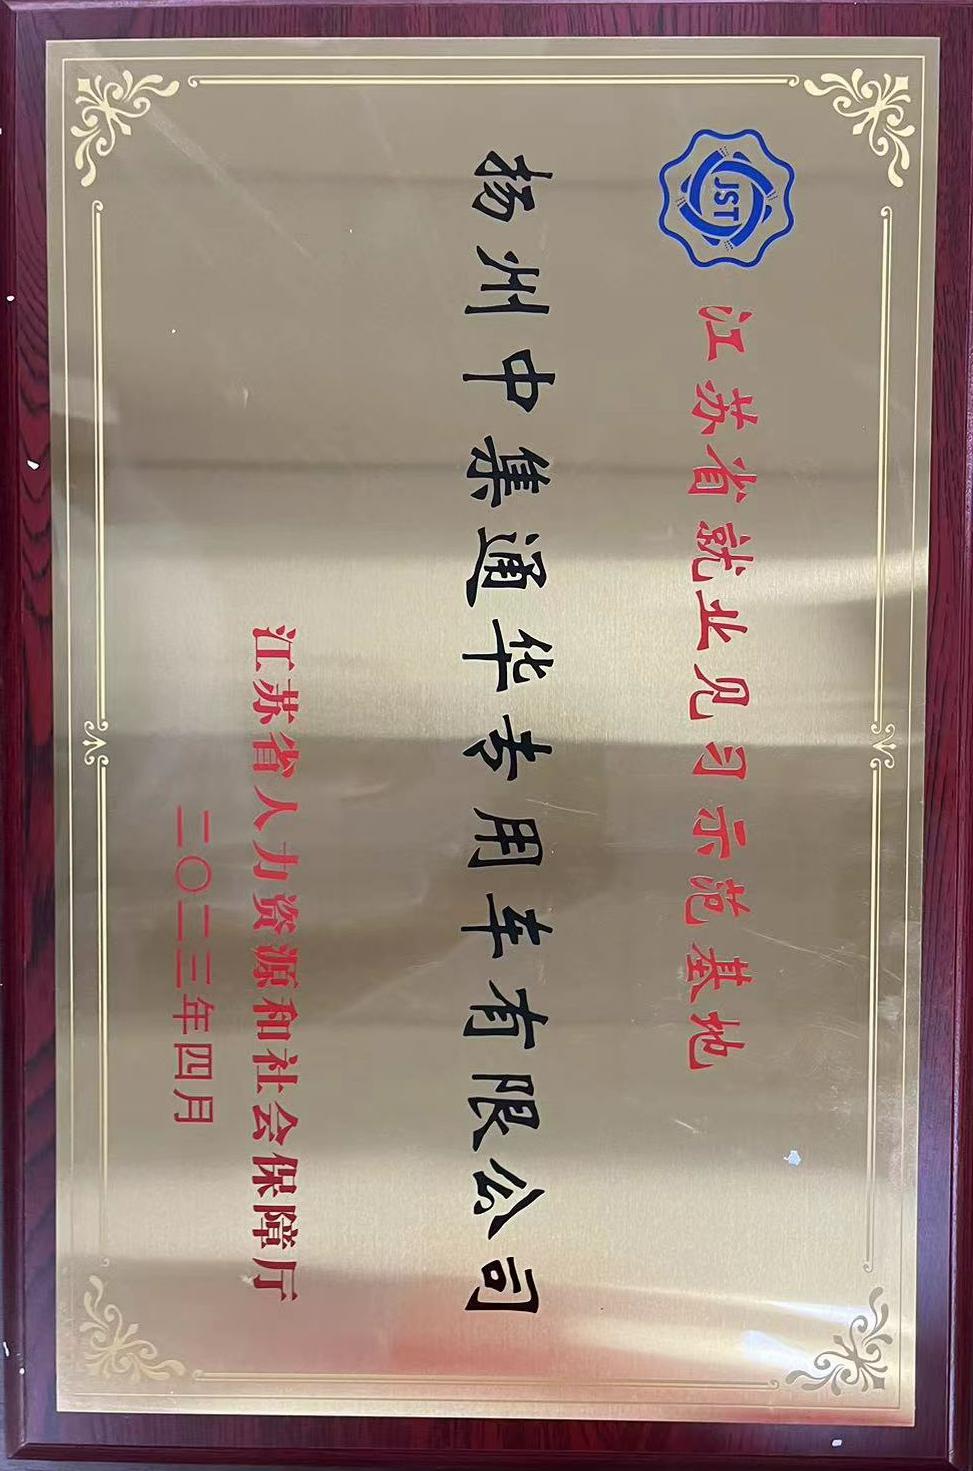 JST
江苏省就业见习示范基地
扬州中集通华专用车有限公司
江苏省人力资源和社会保障厅
二〇二三年四月